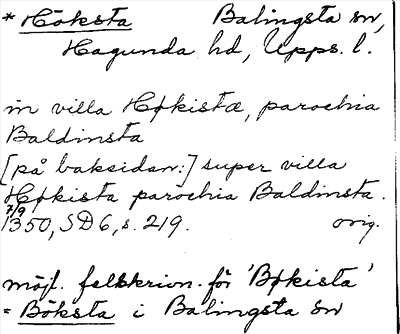 * Höksta Balingsta sn,
Hagunda hd, Upps. l.
in villa Høkistæ, parochia
Baldinsta
[på baksidan:] super villa
Høkista parochia Baldinsta.
7/9
1350, SD6, s. 219. orig.
möjl. felskrivn. för 'Bøkista'
= Böksta i Balingsta sn